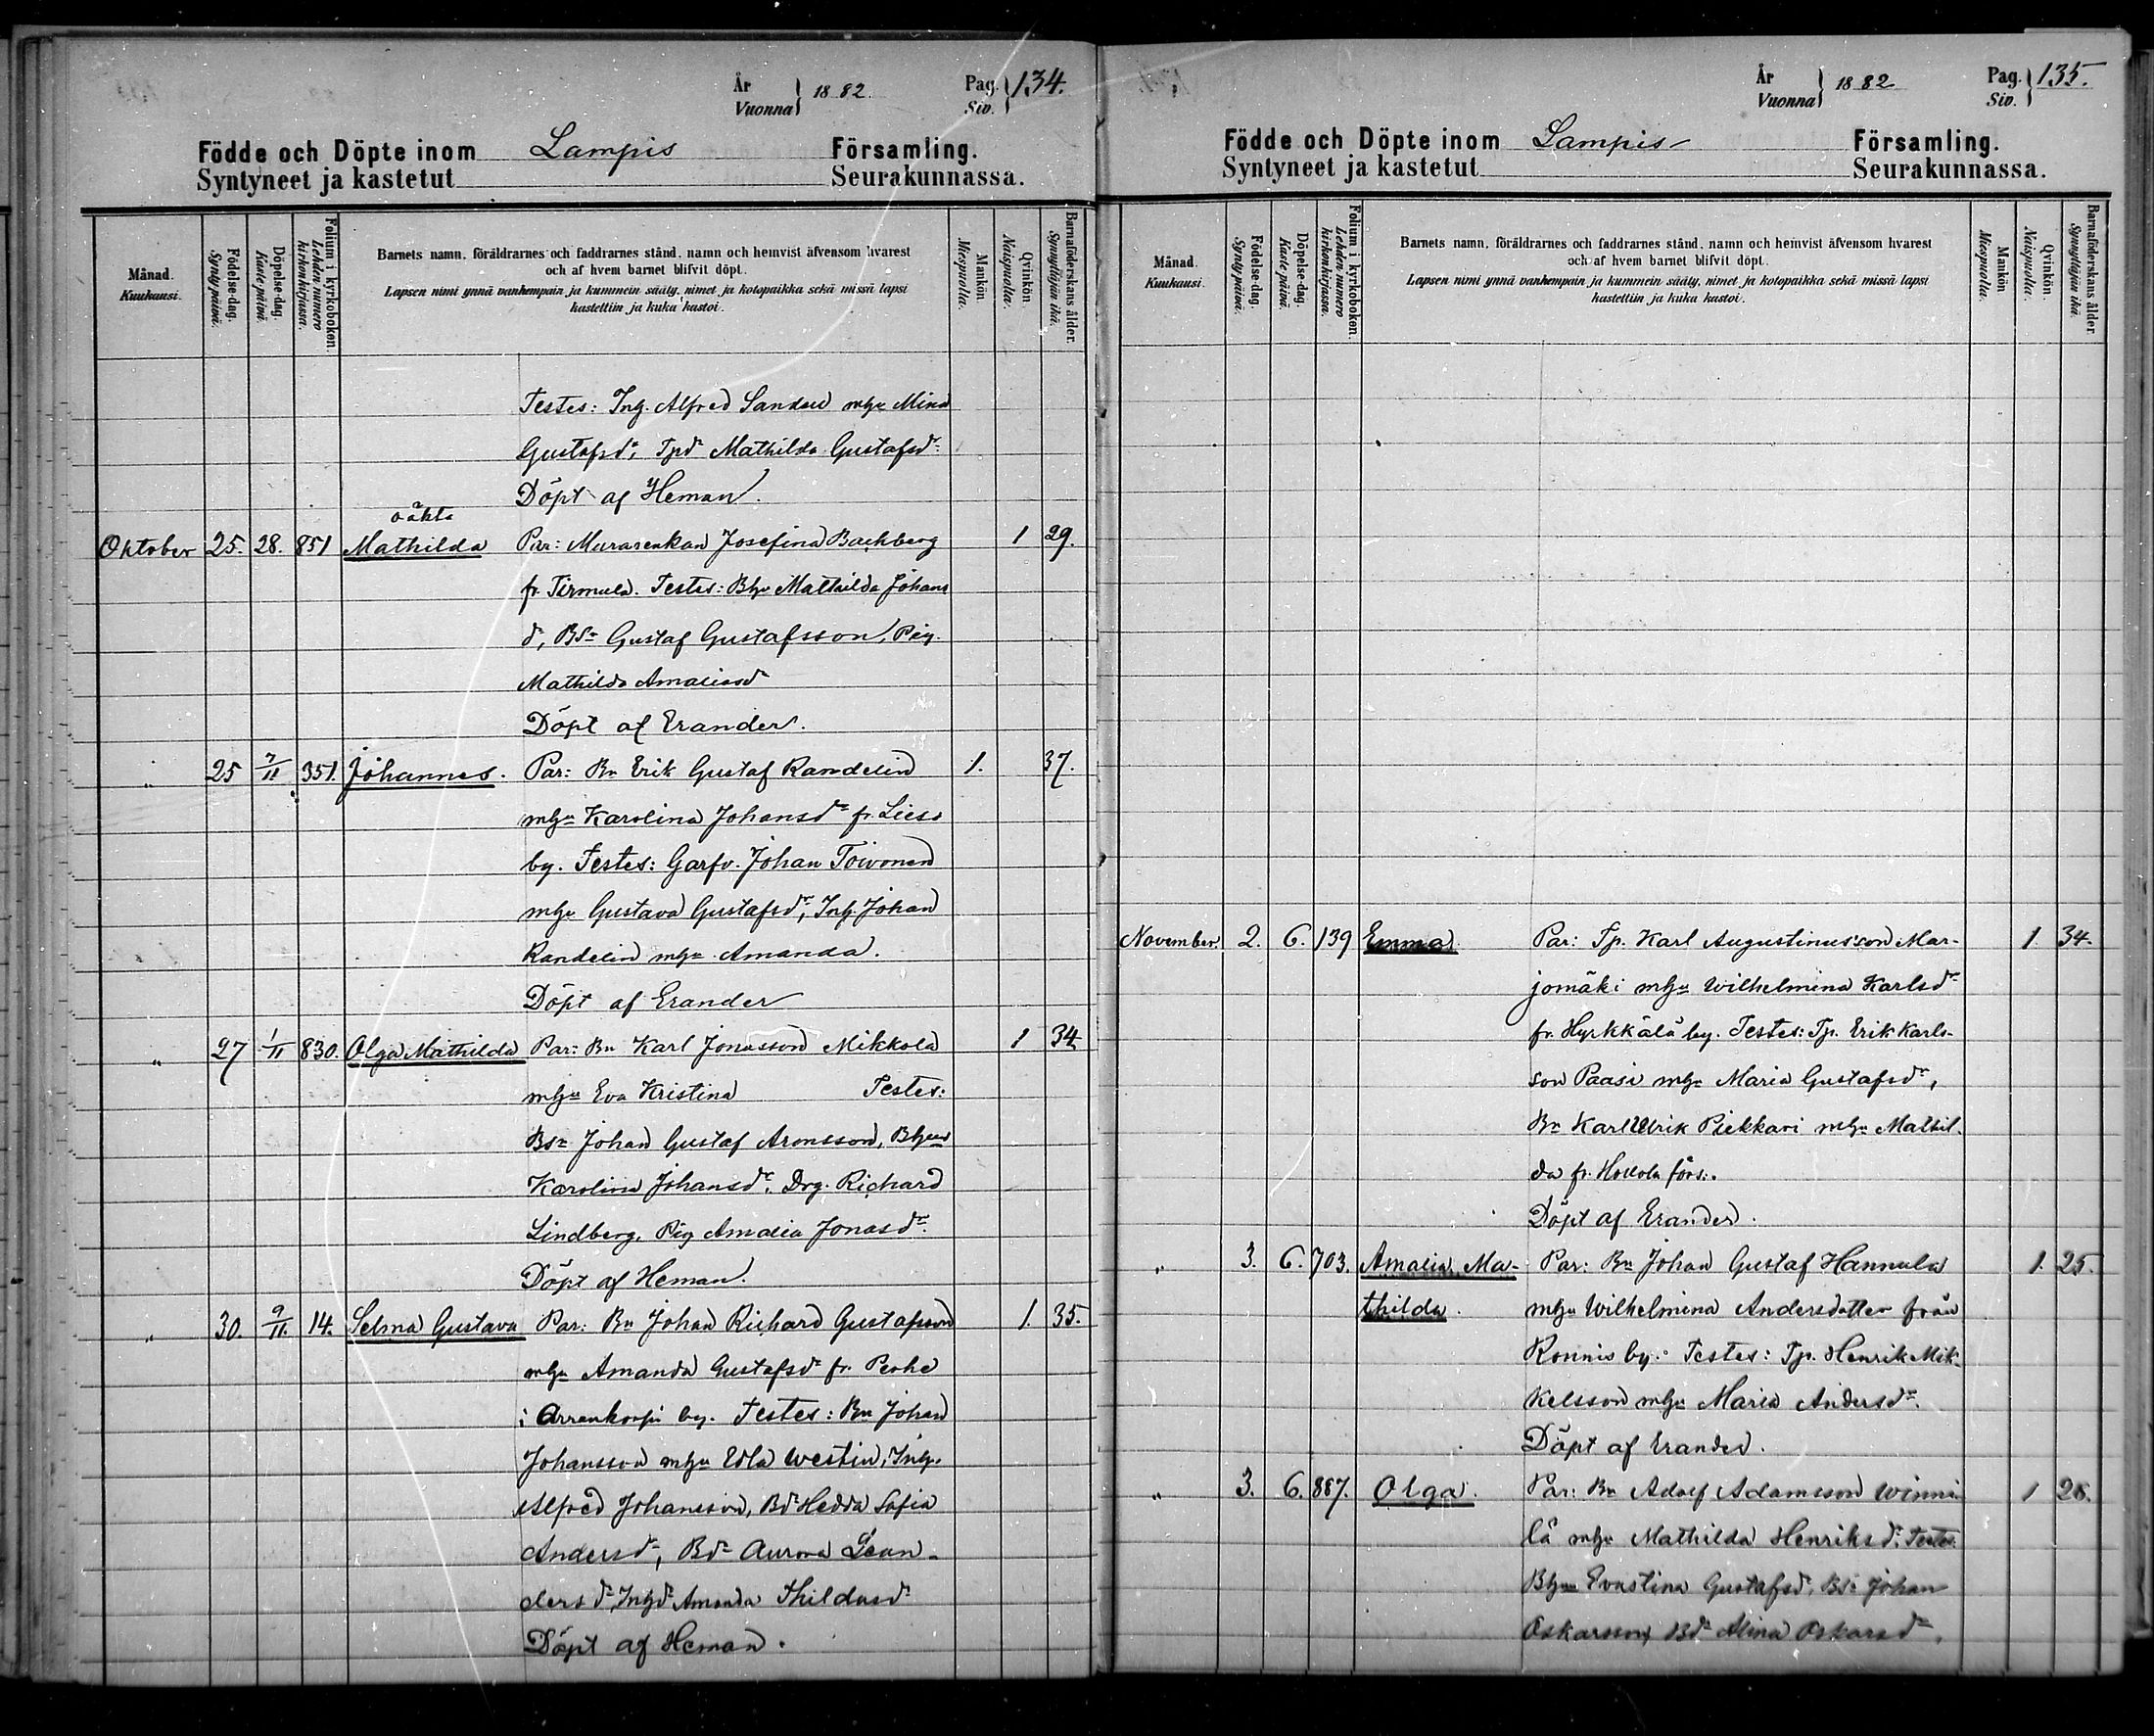 År
Vuonna } 1882. Pag.
Siv. } 134.
Födde och Döpte inom Lampis Församling.
Syntyneet ja kastetut Seurakunnassa.
Månad.
Kuukausi.
Födelse-dag.
Synty päivä.
Döpelse-dag.
Kaste päivä.
Folium i kyrkoboken.
Lehden numero
kirkonkirjassa.
Barnets namn, föräldrarnes och faddrarnes stånd, namn och hemvist äfvensom hvarest
och af hvem barnet blifvit döpt.
Lapsen nimi ynnä vanhempain ja kummein sääty, nimet ja kotopaikka sekä missä lapsi
kastettiin ja kuka kastoi.
Mankön.
Miespuolia.
Qvinkön.
Naispuolia.
Barnaföderskans ålder.
Synnyttäjän ikä.
Testes: Inh. Alfred Sandell mhu Mina
Gustafsdr, Tpdr Mathilda Gustafsdr
Döpt af Heman.
oäkta
Oktober 25. 28. 851 Mathilda Par: Murarenkan Josefina Backberg 1 29.
fr. Tirmula. Testes: Bhu Mathilda Johans
dr, Bsn Gustaf Gustafsson, Pig.
Mathilda Amaliasdr
Döpt af Erander.
" 25 7/11 351. Johannes. Par: Bn Erik Gustaf Randelin 1. 37.
mhu Karolina Johansdr fr. Lieso
by. Testes: Garfv. Johan Toivonen
mhu Gustava Gustafsdr, Inh. Johan
Randelin mhu Amanda.
Döpt af Erander
" 27 1/11 830. Olga Mathilda Par: Bn Karl Jonasson Mikkola 1 34
mhu Eva Kristina Testes:
Bsn Johan Gustaf Aronsson, Bhu
Karolina Johansdr, Drg. Richard
Lindberg, Pig Amalia Jonasdr.
Döpt af Heman.
" 30. 9/11. 14. Selma Gustava Par: Bn Johan Richard Gustafsson 1. 35.
mhu Amanda Gustafsdr fr. Perhe
i Arrankorpi by. Testes: Bn Johan
Johansson mhu Edla Westin, Inh.
Alfred Johansson, Bdr Hedda Sofia
Andersdr, Bdr Aurora Lean-
dersdr, Inhdr Amanda Thildasdr
Döpt af Heman.
År
Vuonna } 1882 Pag.
Siv. } 135.
Födde och Döpte inom Lampis Församling.
Syntyneet ja kastetut Seurakunnassa.
Månad.
Kuukausi.
Födelse-dag.
Synty päivä.
Döpelse-dag.
Kaste päivä.
Folium i kyrkoboken.
Lehden numero
kirkonkirjassa.
Barnets namn, föräldrarnes och faddrarnes stånd, namn och hemvist äfvensom hvarest
och af hvem barnet blifvit döpt.
Lapsen nimi ynnä vanhempain ja kummein sääty, nimet ja kotopaikka sekä missä lapsi
kastettiin ja kuka kastoi.
Mankön
Miespuolia.
Qvinkön.
Naispuolia.
Barnaföderskans ålder.
Synnyttäjän ikä.
November. 2. 6. 139 Emma Par: Tp. Karl Augustinusson Mar- 1 34.
jomäki mhu Wilhelmina Karlsdr
fr. Hyrkkälä by. Testes: Tp. Erik Karls-
son Paasi mhu Maria Gustafsdr,
Bn Karl Ulrik Piekkari mhu Mathil-
da fr. Hollola förs:.
Döpt af Erander.
" 3. 6. 703. Amalia Ma- Par: Bn Johan Gustaf Hannula 1. 25.
thilda. mhu Wilhelmina Andersdotter från
Ronnis by. Testes: Tp. Henrik Mik-
kelsson mhu Maria Andersdr.
Döpt af Erander.
" 3. 6. 887. Olga. Par: Bn Adolf Adamsson Winni- 1
lä mhu Mathilda Henriksdr. Testes
Bhu Evastina Gustafsdr, Bsn Johan
Oskarsson, Bdr Alina Oskarsdr.